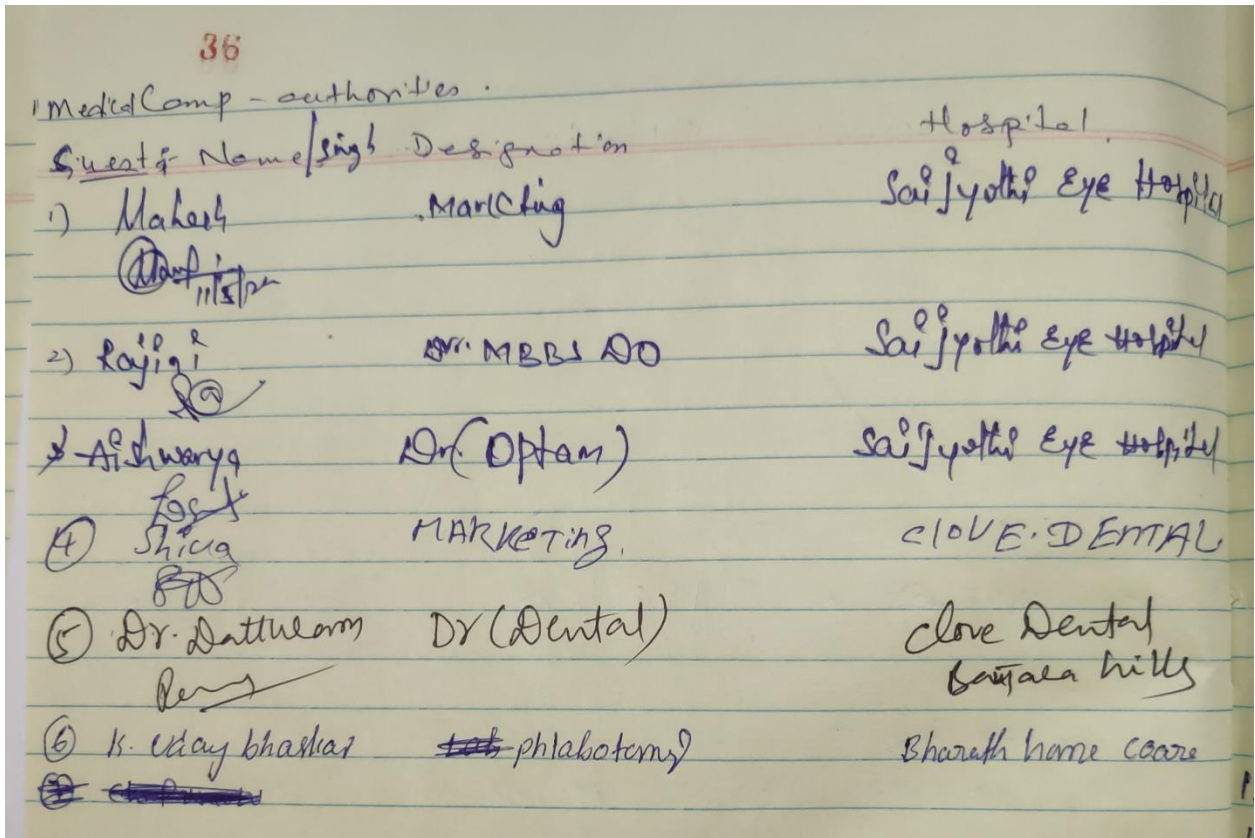 36
Medical Camp - authorities.
Guest's Name/singh Designation Hospital
1) Mahesh Markcting Sai Jyothi Eye Hospital
11/5/22
2) Rajini Dr. MBBS DO Sai Jyothi Eye Hospital
3 Aishwarya Dr (Optam) Sai Jyothi Eye Hospital
4 Shiva MARKeTing. ClOVE. DENTAL
5 Dr. Datturam Dr (Dental) Clove Dental
Banjara hills
6 K. Uday bhaskar phlabotomy Bharath home coare